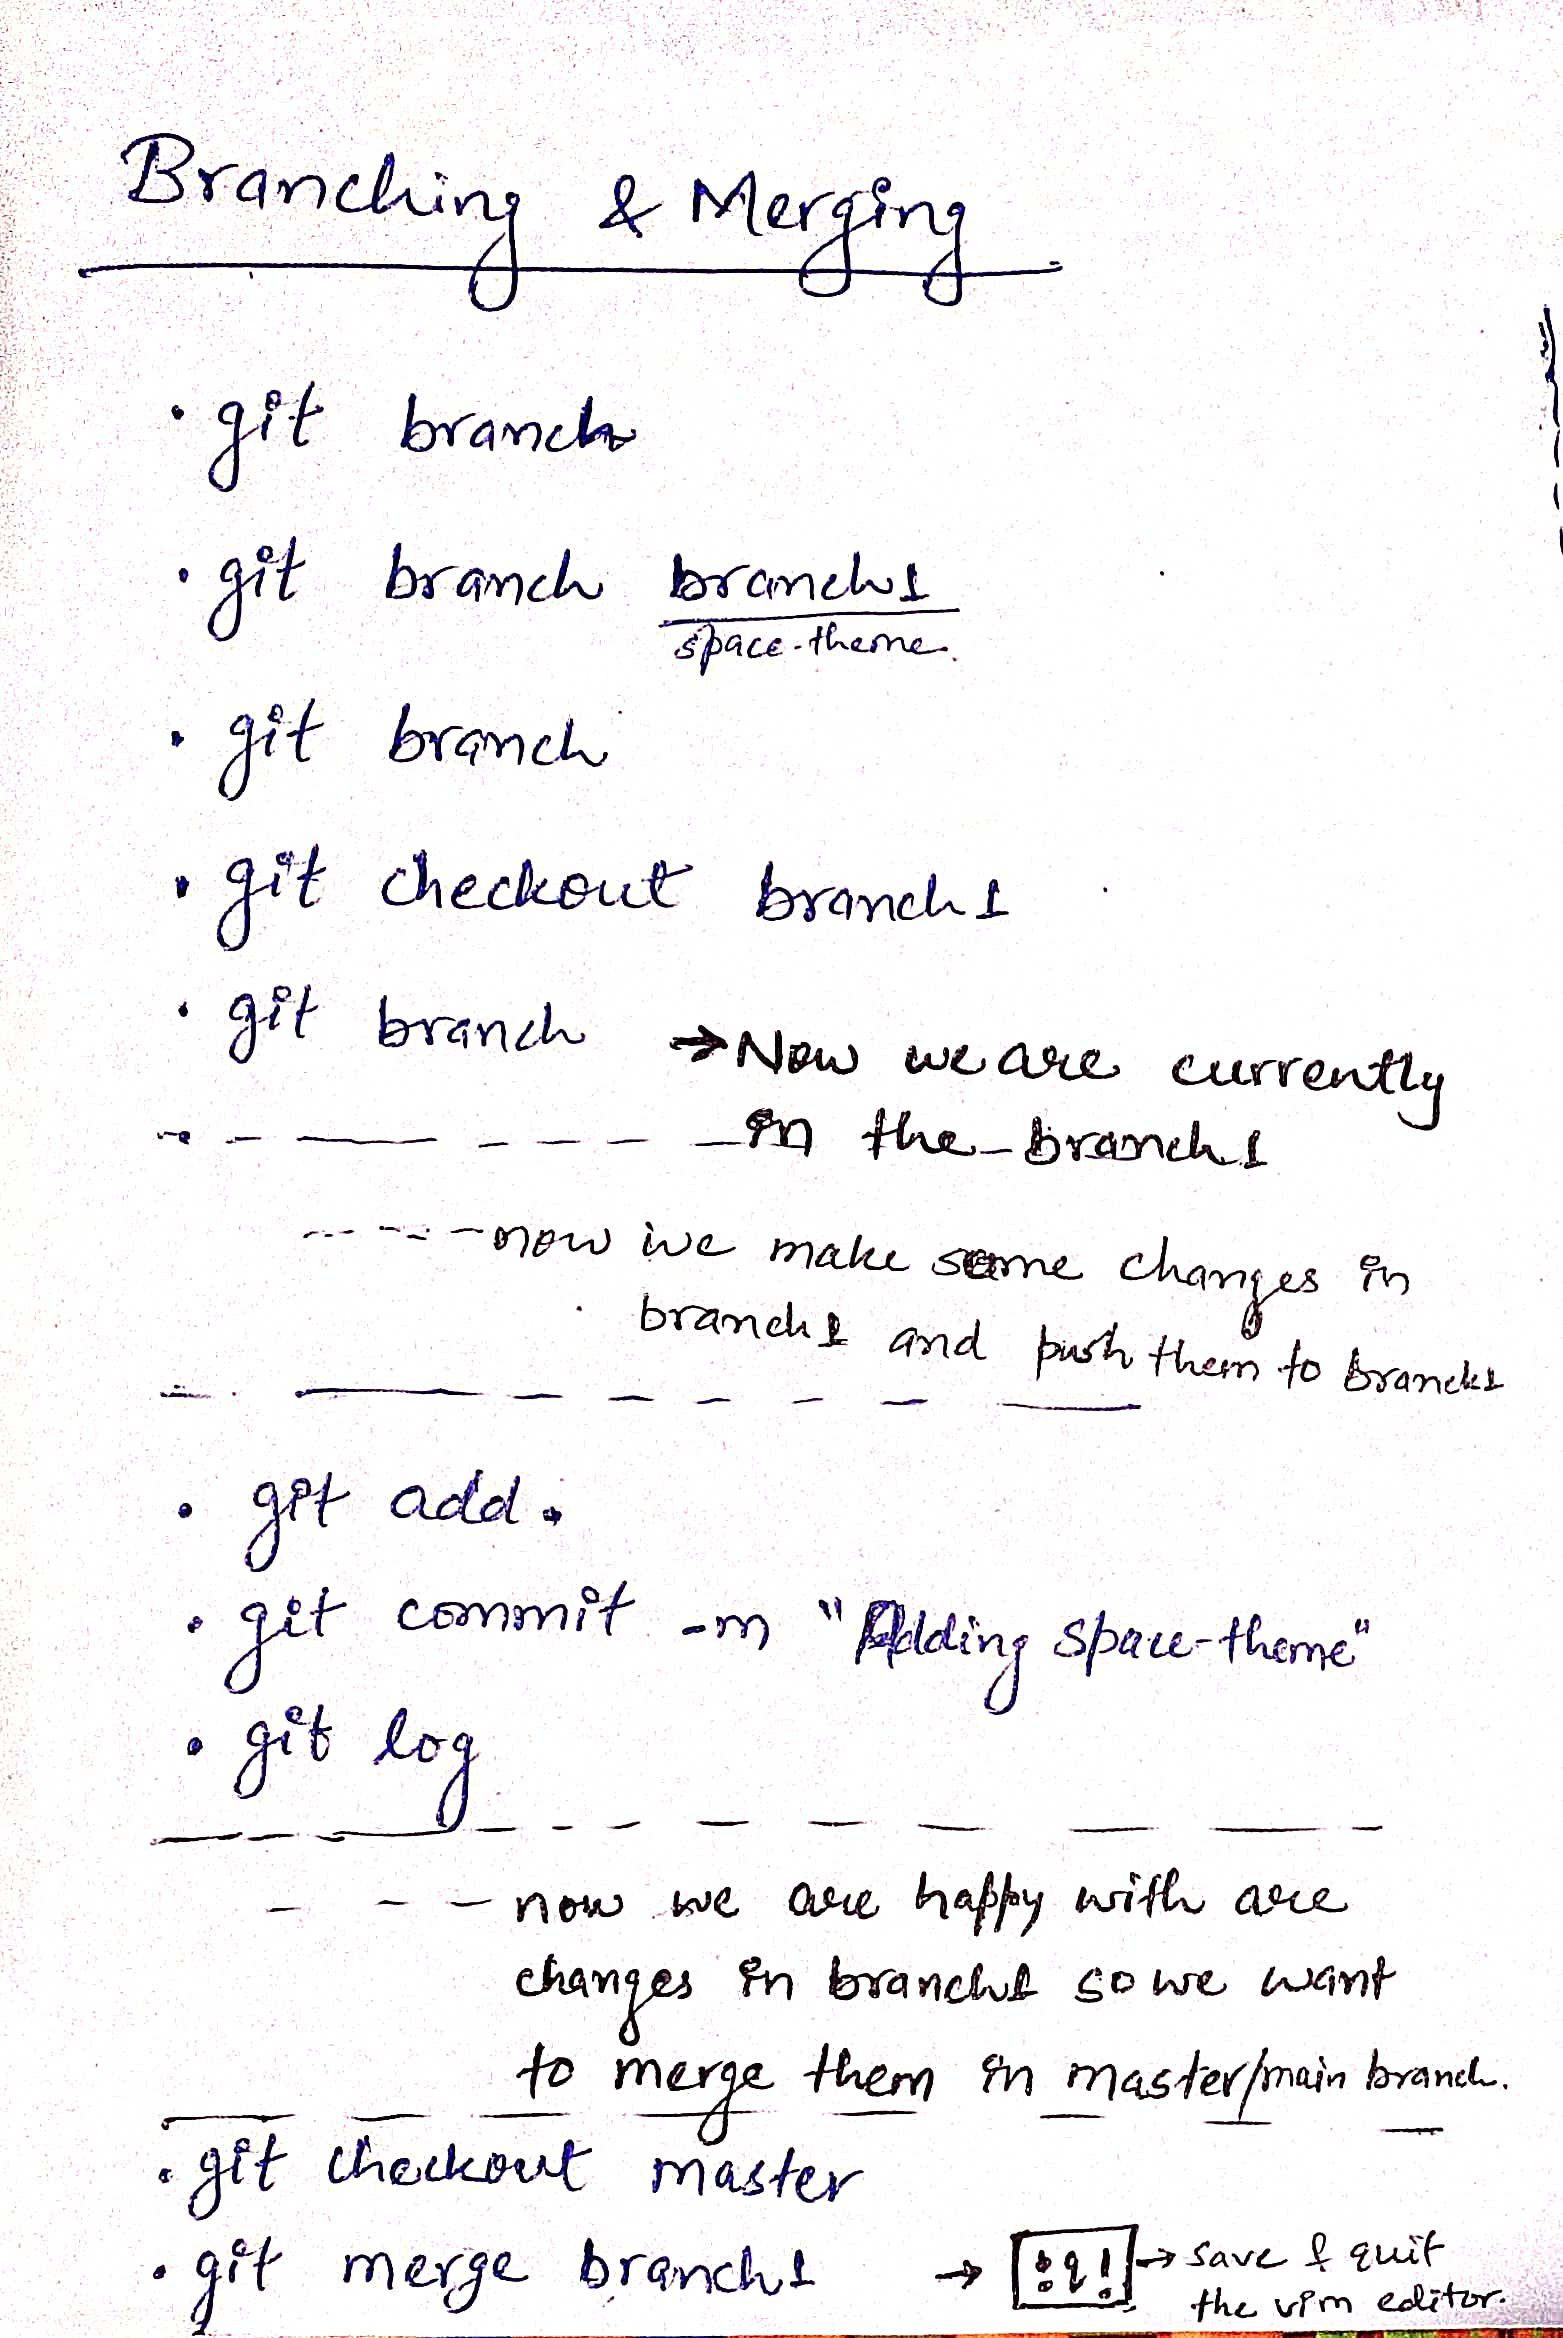 Branching & Merging
• git branch
• git branch branch1
space-theme.
• git branch
• git checkout branch1
• git branch → Now we are currently
in the branch1
now we make some changes in
branch1 and push them to branch1
• git add .
• git commit -m "Adding space-theme"
• git log
now we are happy with are
changes in branch1 so we want
to merge them in master/main branch.
• git checkout master
• git merge branch1 → :q! → save & quit
the vim editor.